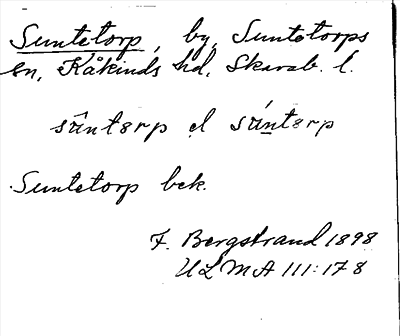 Suntetorp, by, Suntetorps
sn, Kåkinds hd, Skarab. l.
sûntørp el súntørp
Suntetorp bek.
F. Bergstrand 1898
ULMA 111:178